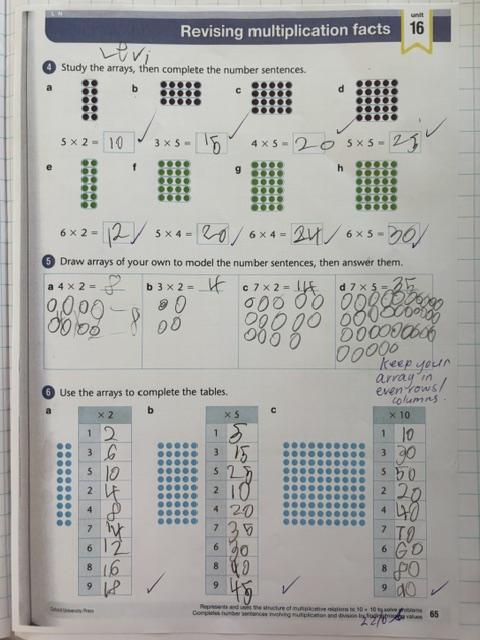 unit
Revising multiplication facts 16
Levi
4 Study the arrays, then complete the number sentences.
a b c d
5 × 2 = 10 3 × 5 = 15 4 × 5 = 20 5 × 5 = 25
e f g h
6 × 2 = 12 5 × 4 = 20 6 × 4 = 24 6 × 5 = 30
5 Draw arrays of your own to model the number sentences, then answer them.
a 4 × 2 = 8 b 3 × 2 = 4 c 7 × 2 = 14 d 7 × 5 = 35
8
Keep your
array in
even rows/
columns.
6 Use the arrays to complete the tables.
a × 2 b × 5 c × 10
1 2 1 5 1 10
3 6 3 15 3 30
5 10 5 25 5 50
2 4 2 10 2 20
4 8 4 20 4 40
7 14 7 35 7 70
6 12 6 30 6 60
8 16 8 40 8 80
9 18 9 45 9 90
Oxford University Press
Represents and uses the structure of multiplicative relations to 10 × 10 to solve problems
Completes number sentences involving multiplication and division by finding missing values 65